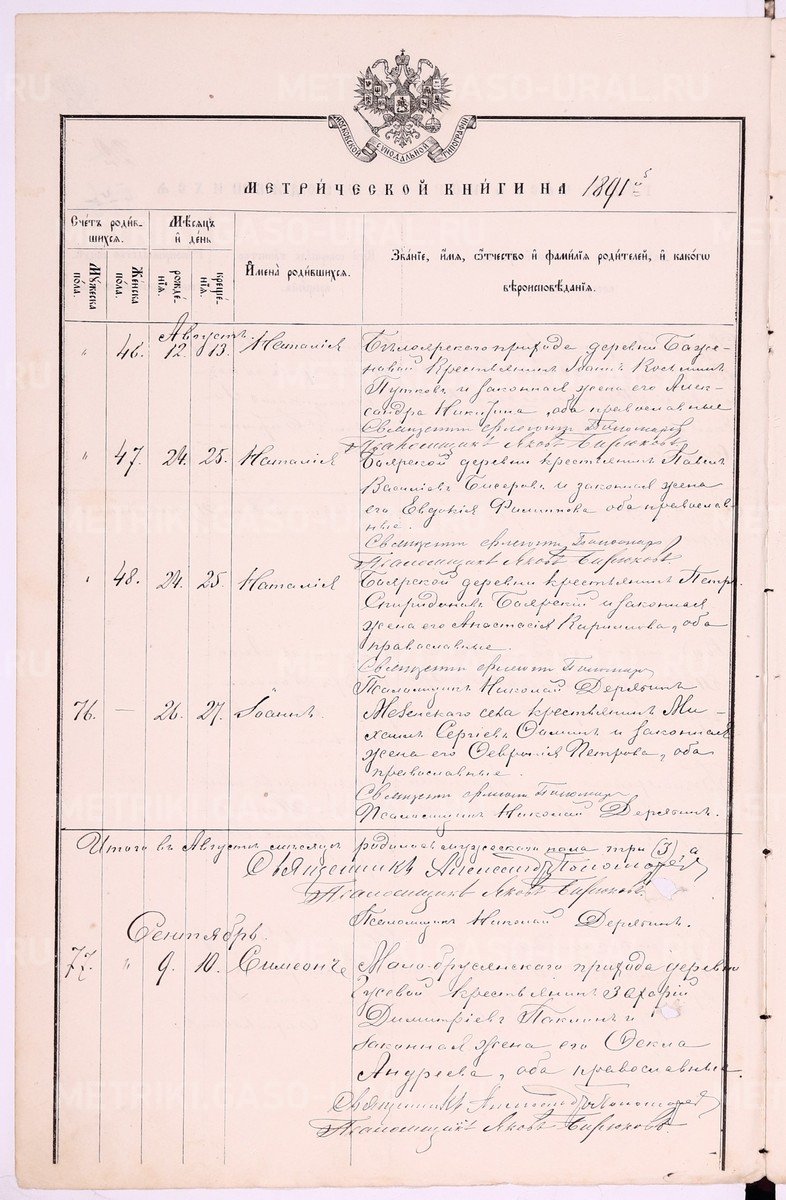 МОСКОВСКОЙ СѴНОДАЛЬНОЙ ТИПОГРАФІИ
МЕТРИ́ЧЕСКОЙ КНИ́ГИ НА 1891й
Сче́тъ роди́вшихся.
Мѣ́сяцъ и де́нь
Му́жеска по́ла.
Же́нска по́ла.
рожде́нїя.
креще́нїя.
И҆мена̀ роди́вшихся.
Зва́нїе, и҆́мя, ѻ҆́тчество и҆ фами́лїя роди́телей, и҆ како́гѡ
вѣроисповѣ́данїя.
Августъ.
" 46. 12. 13. Наталія Бѣлоярскаго прихода деревни Баже-
новой крестьянинъ Іоаннъ Косьминъ
Путковъ и законная жена его Алек-
сандра Никитина, оба православные
Псаломщикъ Яковъ Бирюковъ
" 47. 24. 25. Наталія Боярской деревни крестьянинъ Павелъ
Василіевъ Бисеровъ и законная жена
его Евдокія Филиппова оба православ-
ные.
Псаломщикъ Яковъ Бирюковъ
" 48. 24. 25. Наталія Боярской деревни крестьянинъ Петръ
Спиридоновъ Боярскій и законная
жена его Анастасія Кириллова, оба
православные.
Псаломщикъ Николай Дерябинъ
76. — 26. 27. Іоаннъ. Мезенскаго села крестьянинъ Ми-
хаилъ Сергіевъ и законная
жена его Февронія Петрова, оба
православные.
Псаломщикъ Николай Дерябинъ.
Итого въ Августѣ мѣсяцѣ родилось мужескаго пола три (3), а
Священникъ Александръ Пономаревъ
Псаломщикъ Яковъ Бирюковъ.
Псаломщикъ Николай Дерябинъ.
Сентябрь.
77. " 9. 10. Симеонъ Мало-брусянскаго прихода деревни
Гусевой крестьянинъ Захарій
Димитріевъ и
законная жена его Ѳекла
Андреева, оба православные.
Священникъ Александръ Пономаревъ
Псаломщикъ Яковъ Бирюковъ